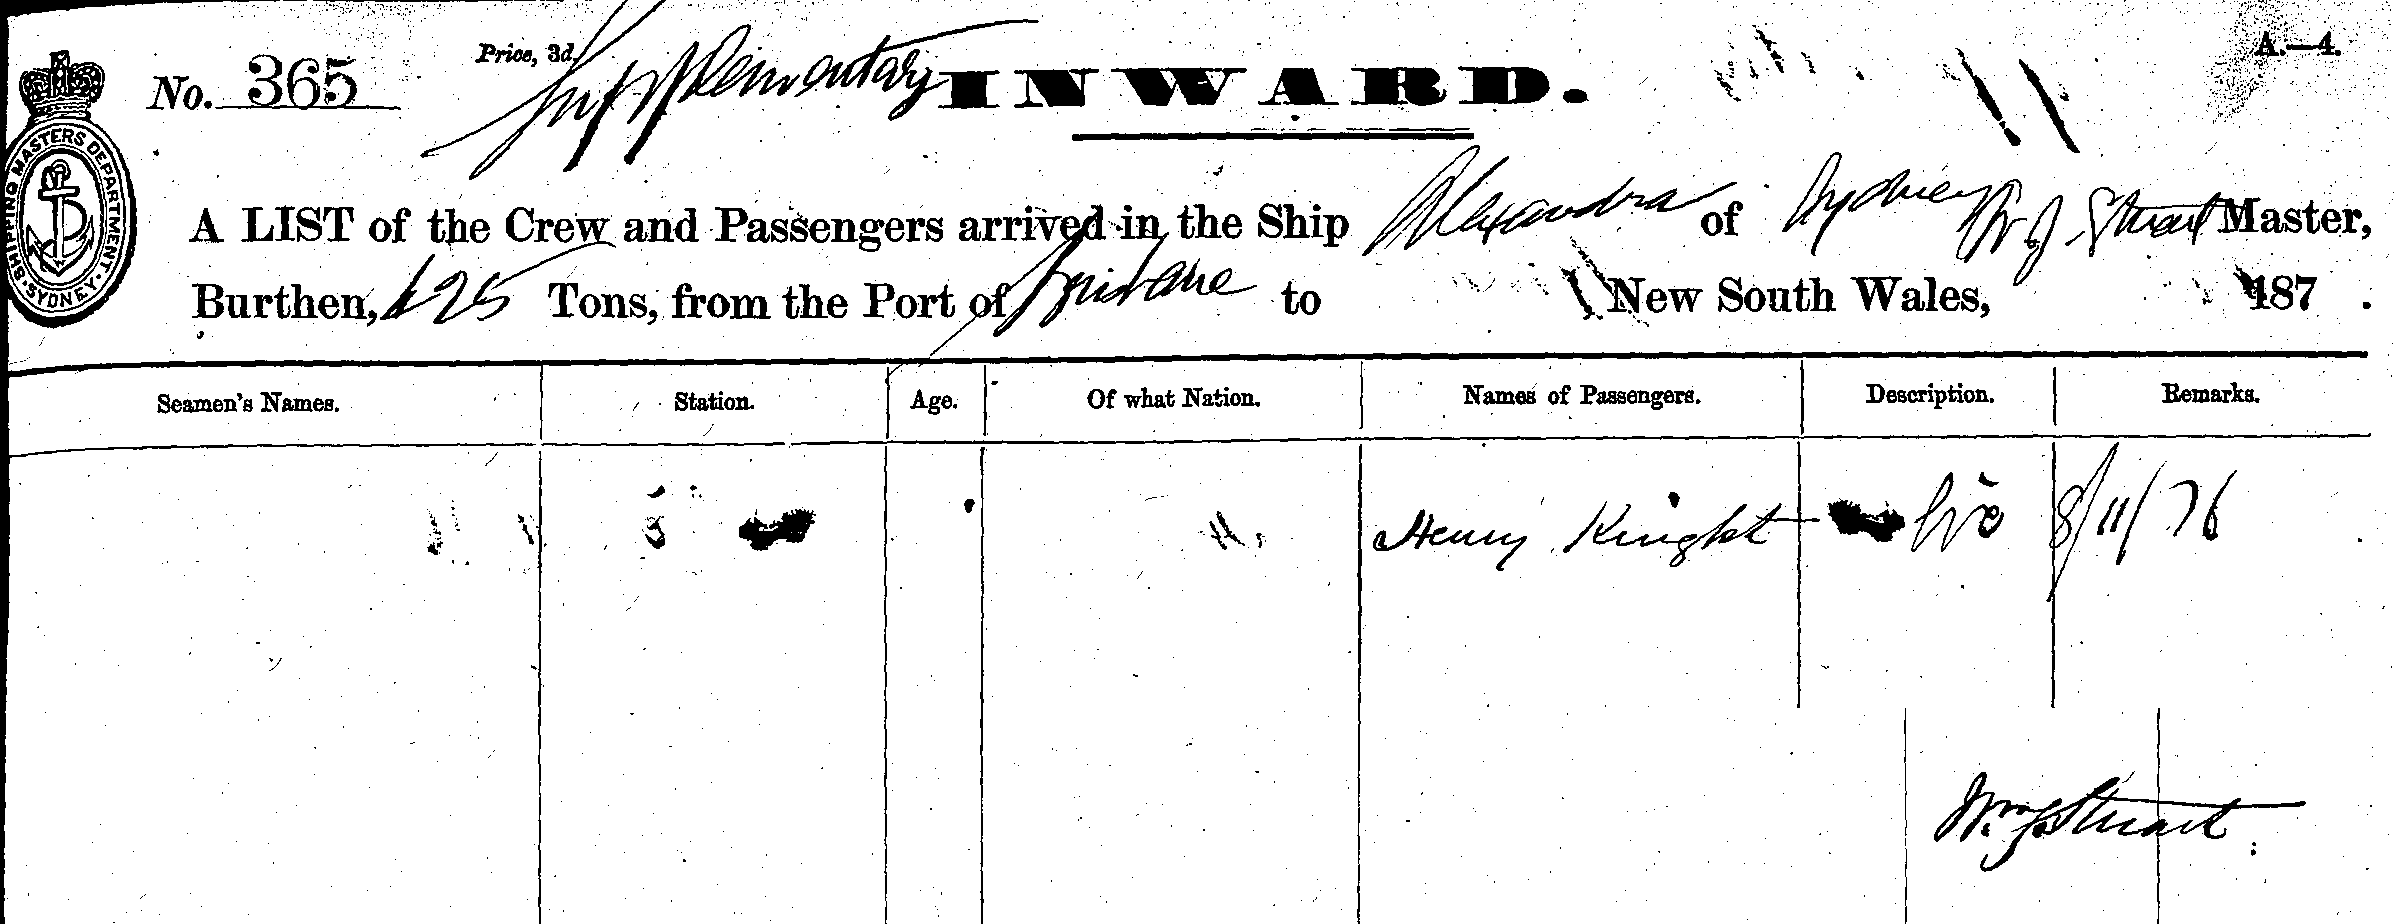 No. 365 Price, 3d. Supplementary INWARD. A.—4.
SHIPPING MASTERS DEPARTMENT. SYDNEY.
A LIST of the Crew and Passengers arrived in the Ship Alexandra of Sydney Wm J Stuart Master,
Burthen, 425 Tons, from the Port of Brisbane to New South Wales, 187 .
Seamen's Names. Station. Age. Of what Nation. Names of Passengers. Description. Remarks.
Henry Knight 8/11/76
Wm J Stuart